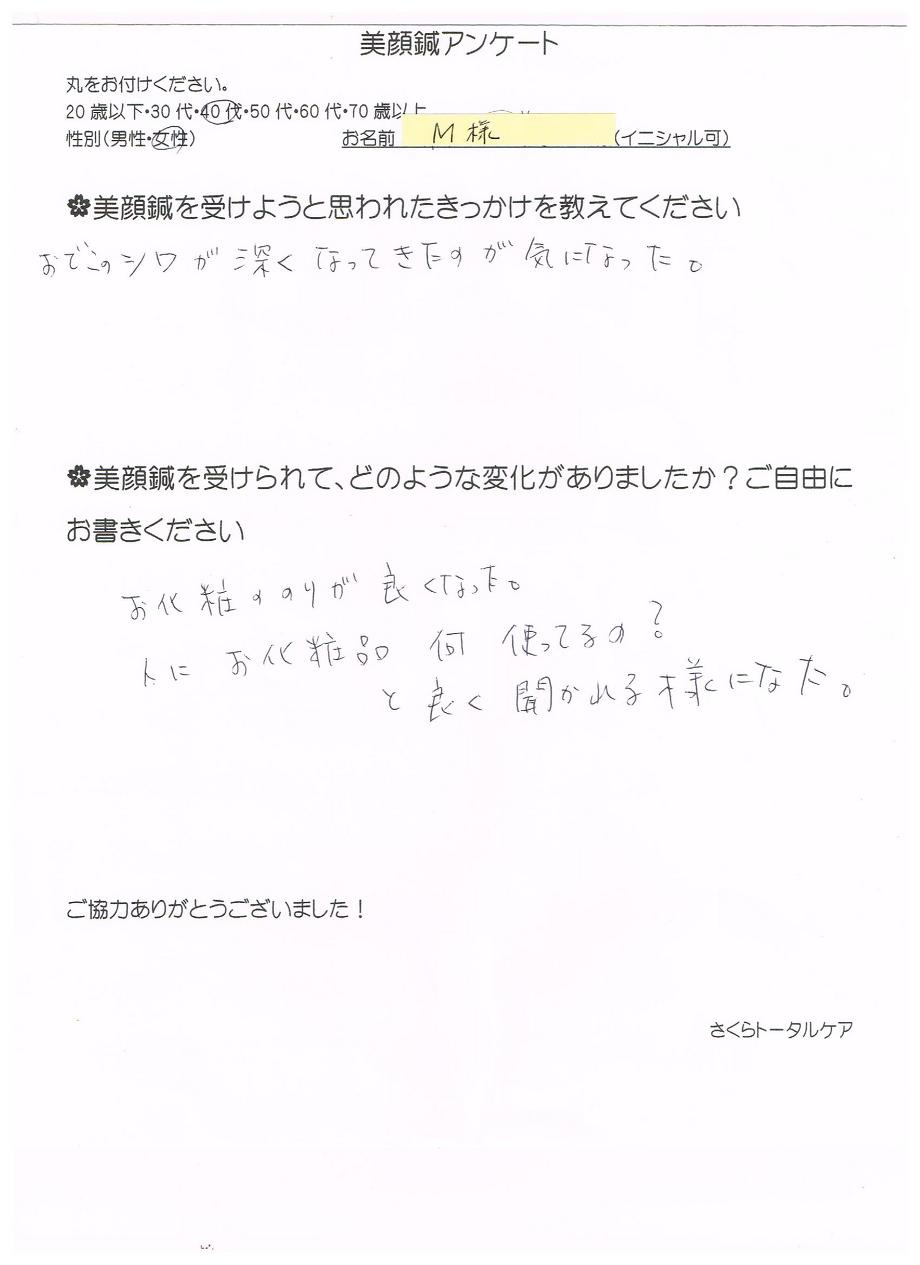 美顔鍼アンケート
丸をお付けください。
20歳以下・30代・40代・50代・60代・70歳以上
性別(男性・女性) お名前 M様 (イニシャル可)
✽美顔鍼を受けようと思われたきっかけを教えてください
おでこのシワが深くなってきたのが気になった。
✽美顔鍼を受けられて、どのような変化がありましたか?ご自由に
お書きください
お化粧ののりが良くなった。
人にお化粧品何使ってるの?
と良く聞かれる様になった。
ご協力ありがとうございました!
さくらトータルケア